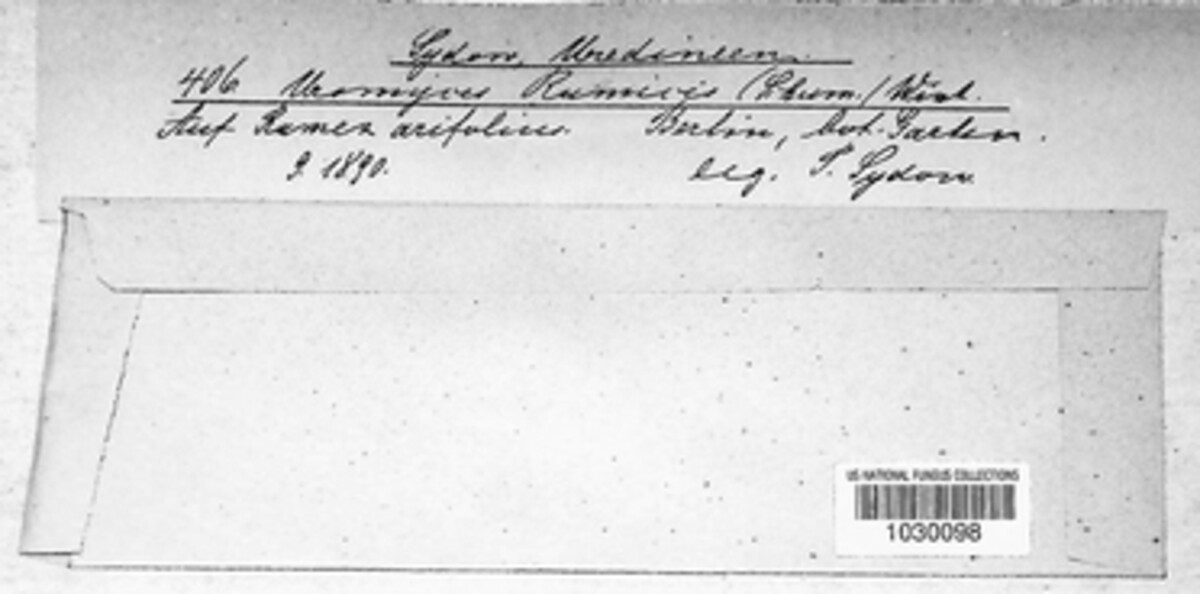 Sydow, Uredineen.
406. Uromyces Rumicis (Schum.) Wint.
Auf Rumex arifolius. Berlin, bot. Garten.
9. 1890. leg. P. Sydow.
US NATIONAL FUNGUS COLLECTIONS
1030098